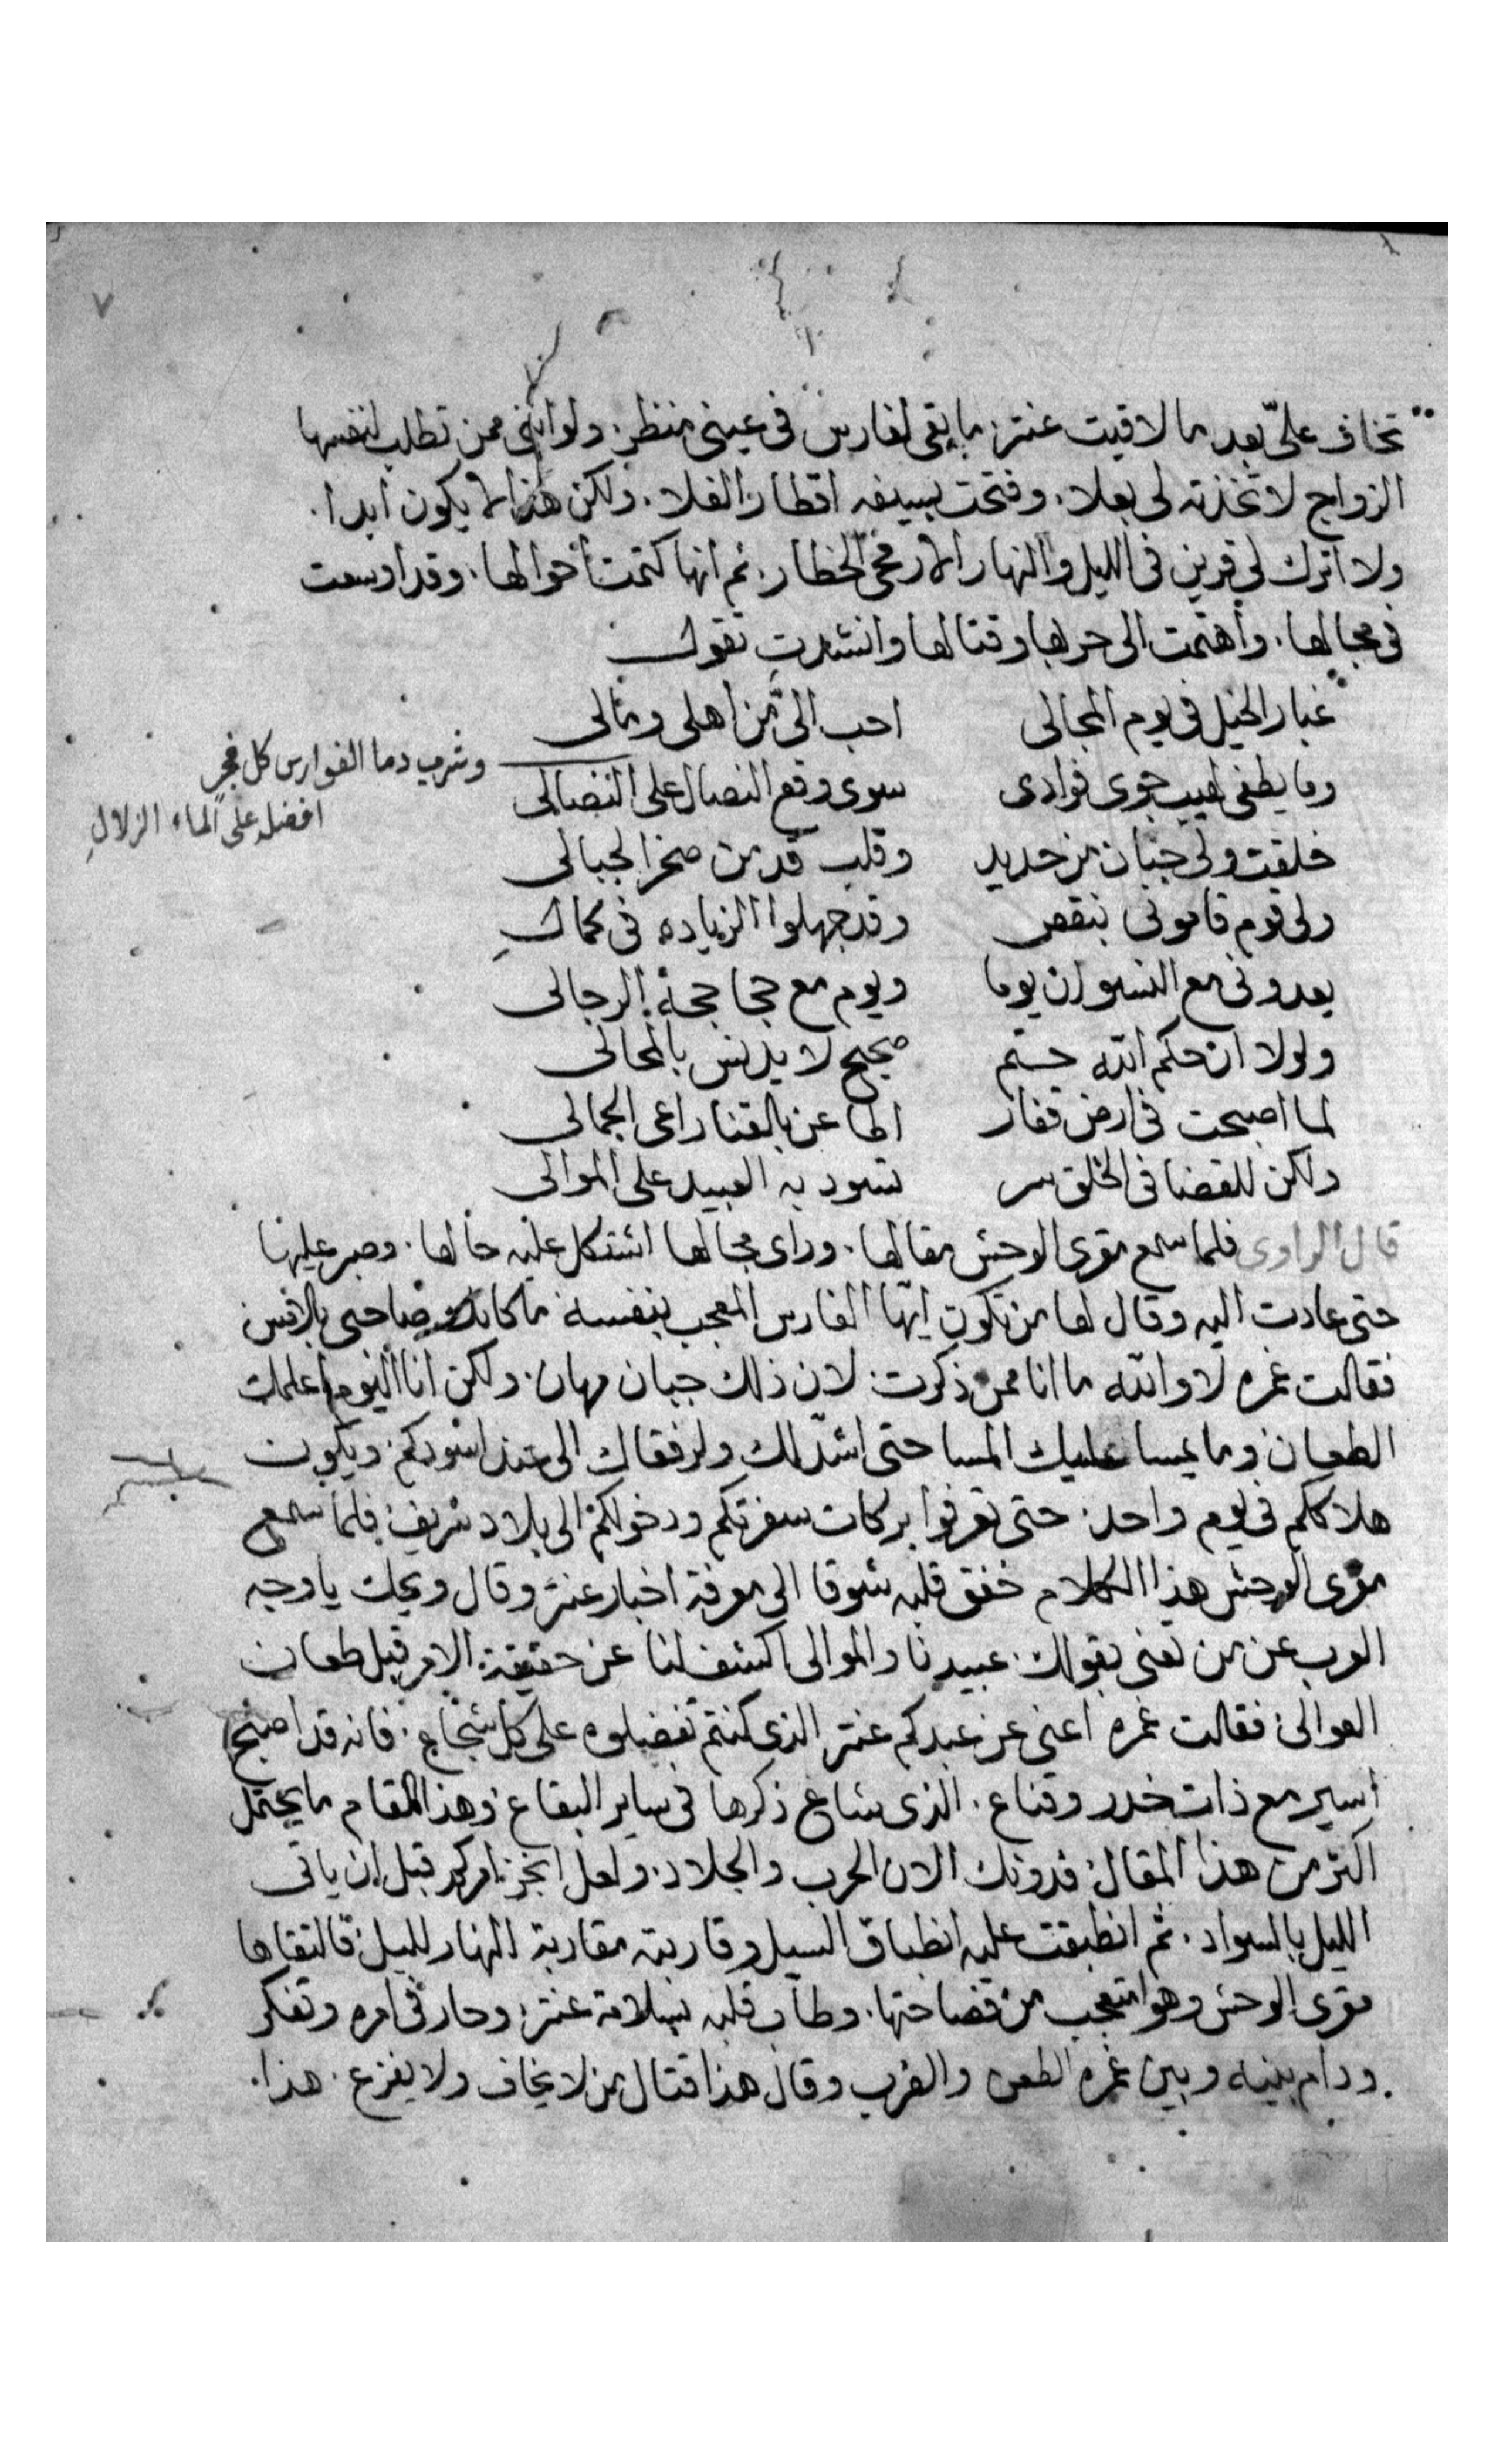 تخاف علىّ بعد ما لاقيت عنتر ما بقى لفارس فى عينى منظر. ولو اننى ممن تطلب لنفسها
الزواج لاتخذته لى بعلا. وفتحت بسيفه اقطار الفلا. ولكن هذا لا يكون ابدا.
ولا اترك لى قرين فى الليل والنهار الا رمحى الخطار. ثم انها كتمت أحوالها. وقد اوسعت
فى مجالها. وأهتمت الى حربها وقتالها وانشدت تقول
غبار الخيل فى يوم المجالى احب الىّ من أهلى ومالى
وشرب دما الفوارس كل فجرٍ
افضله على الماء الزلالِ
وما يطفى لهيب جوى فوادى سوى وقع النصال على النصالى
خلقت ولى جنان من حديد وقلب قد من صخر الجبالى
ولى قوم قامونى بنقص وقد جهلوا الزياده فى كمالِ
يعدونى مع النسوان يوما ويوم مع حجاججة الرجالى
ولولا ان حكم الله حتم صحيح لا يدنس بالمحالى
لما اصبحت فى ارض قفار اطاعن بالقنا راعى الجمالى
ولكن للقضا فى الخلق سر تسود به العبيد على الموالى
قال الراوى فلما سمع مقرى الوحش مقالها. وراى مجالها اشتكل عليه حالها. وصبر عليها
حتى عادت اليه وقال لها من تكون ايها الفارس المعجب بنفسه ما كانك صاحبى بالامس
فقالت غمره لا والله ما انا ممن ذكرت. لان ذلك جبان مهان. ولكن انا اليوم اعلمك
الطعان وما يمسا عليك المسا حتى اشدّلك ولرفقاك الى عند اسودكم. ويكون
هلاككم فى يوم واحد. حتى تعرفوا بركات سفرتكم ودخولكم الى بلاد شريف. فلما سمع
مقرى الوحش هذا الكلام خفق قلبه شوقا الى معرفة اخبار عنتر وقال ويحك يا وجه
العرب عن من تعنى بقولك. عبيدنا والموالى اكشف لنا عن حقيقة الامر قبل طعان
العوالى. فقالت غمره اعنى عن عبدكم عنتر الذى كنتم تفضلوه على كل شجاع. فانه قد اصبح
أسير مع ذات خدر وقناع. الذى شاع ذكرها فى ساير البقاع. وهذا المقام ما يحتمل
اكثر من هذا المقال. فدونك الان الحرب والجلاد. ولعل انجز امركم قبل ان ياتى
الليل بالسواد. ثم انطبقت عليه انطباق السيل وقاربته مقاربة النهار لليل. فالتقاها
مقرى الوحش وهو متعجب من فصاحتها. وطاب قلبه بسلامة عنتر. وحار فى امره وتفكر
ودام بينه وبين غمره الطعن والضرب وقال هذا قتال من لا يخاف ولا يفزع. هذا.